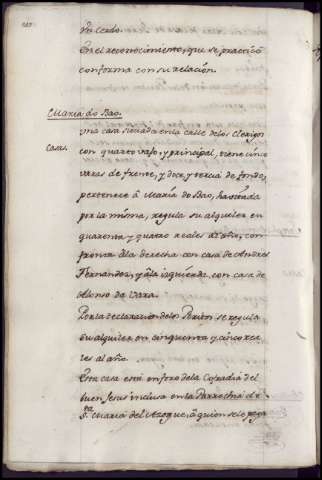 En el reconocimiento, que se practicó
conforma con su relacion.
Maria do Bao.
Una casa situada en la calle de los Clerigos
Casa.
con quarto vajo, y principal, tiene cinco
varas de frente, y doce y tercia de fondo,
pertenece â Maria do Bao, havitada
por la misma, regula su alquiler en
quarenta y quatro reales al año, con
fronta âla derecha con casa de Andres
Fernandez, y âla izquierda con casa de
Alonso da Vara.
Por la declaracion delos Peritos se regula
su alquiler en cinquenta y cinco rea
les al año.
Esta casa está en foro dela Cofradia del
buen Jesus inclusa en la Parrochia de
Sta. Maria del Azogue, â quien se le paga